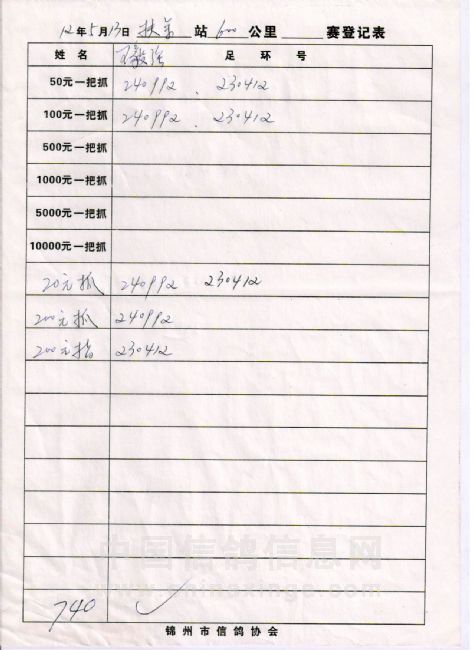 12年5月13日 扶余 站 600 公里 赛登记表
姓名 王毅强 足环号
50元一把抓 240992 、 230412
100元一把抓 240992 、 230412
500元一把抓
1000元一把抓
5000元一把抓
10000元一把抓
20元抓 240992 230412
200元抓 240992
200元指 230412
中国信鸽信息网
www.chinaxinge.com
740
锦州市信鸽协会